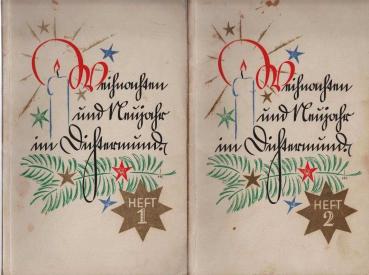 Weihnachten
und Neujahr
im Dichtermunde
HEFT
1
Weihnachten
und Neujahr
im Dichtermunde
HEFT
2